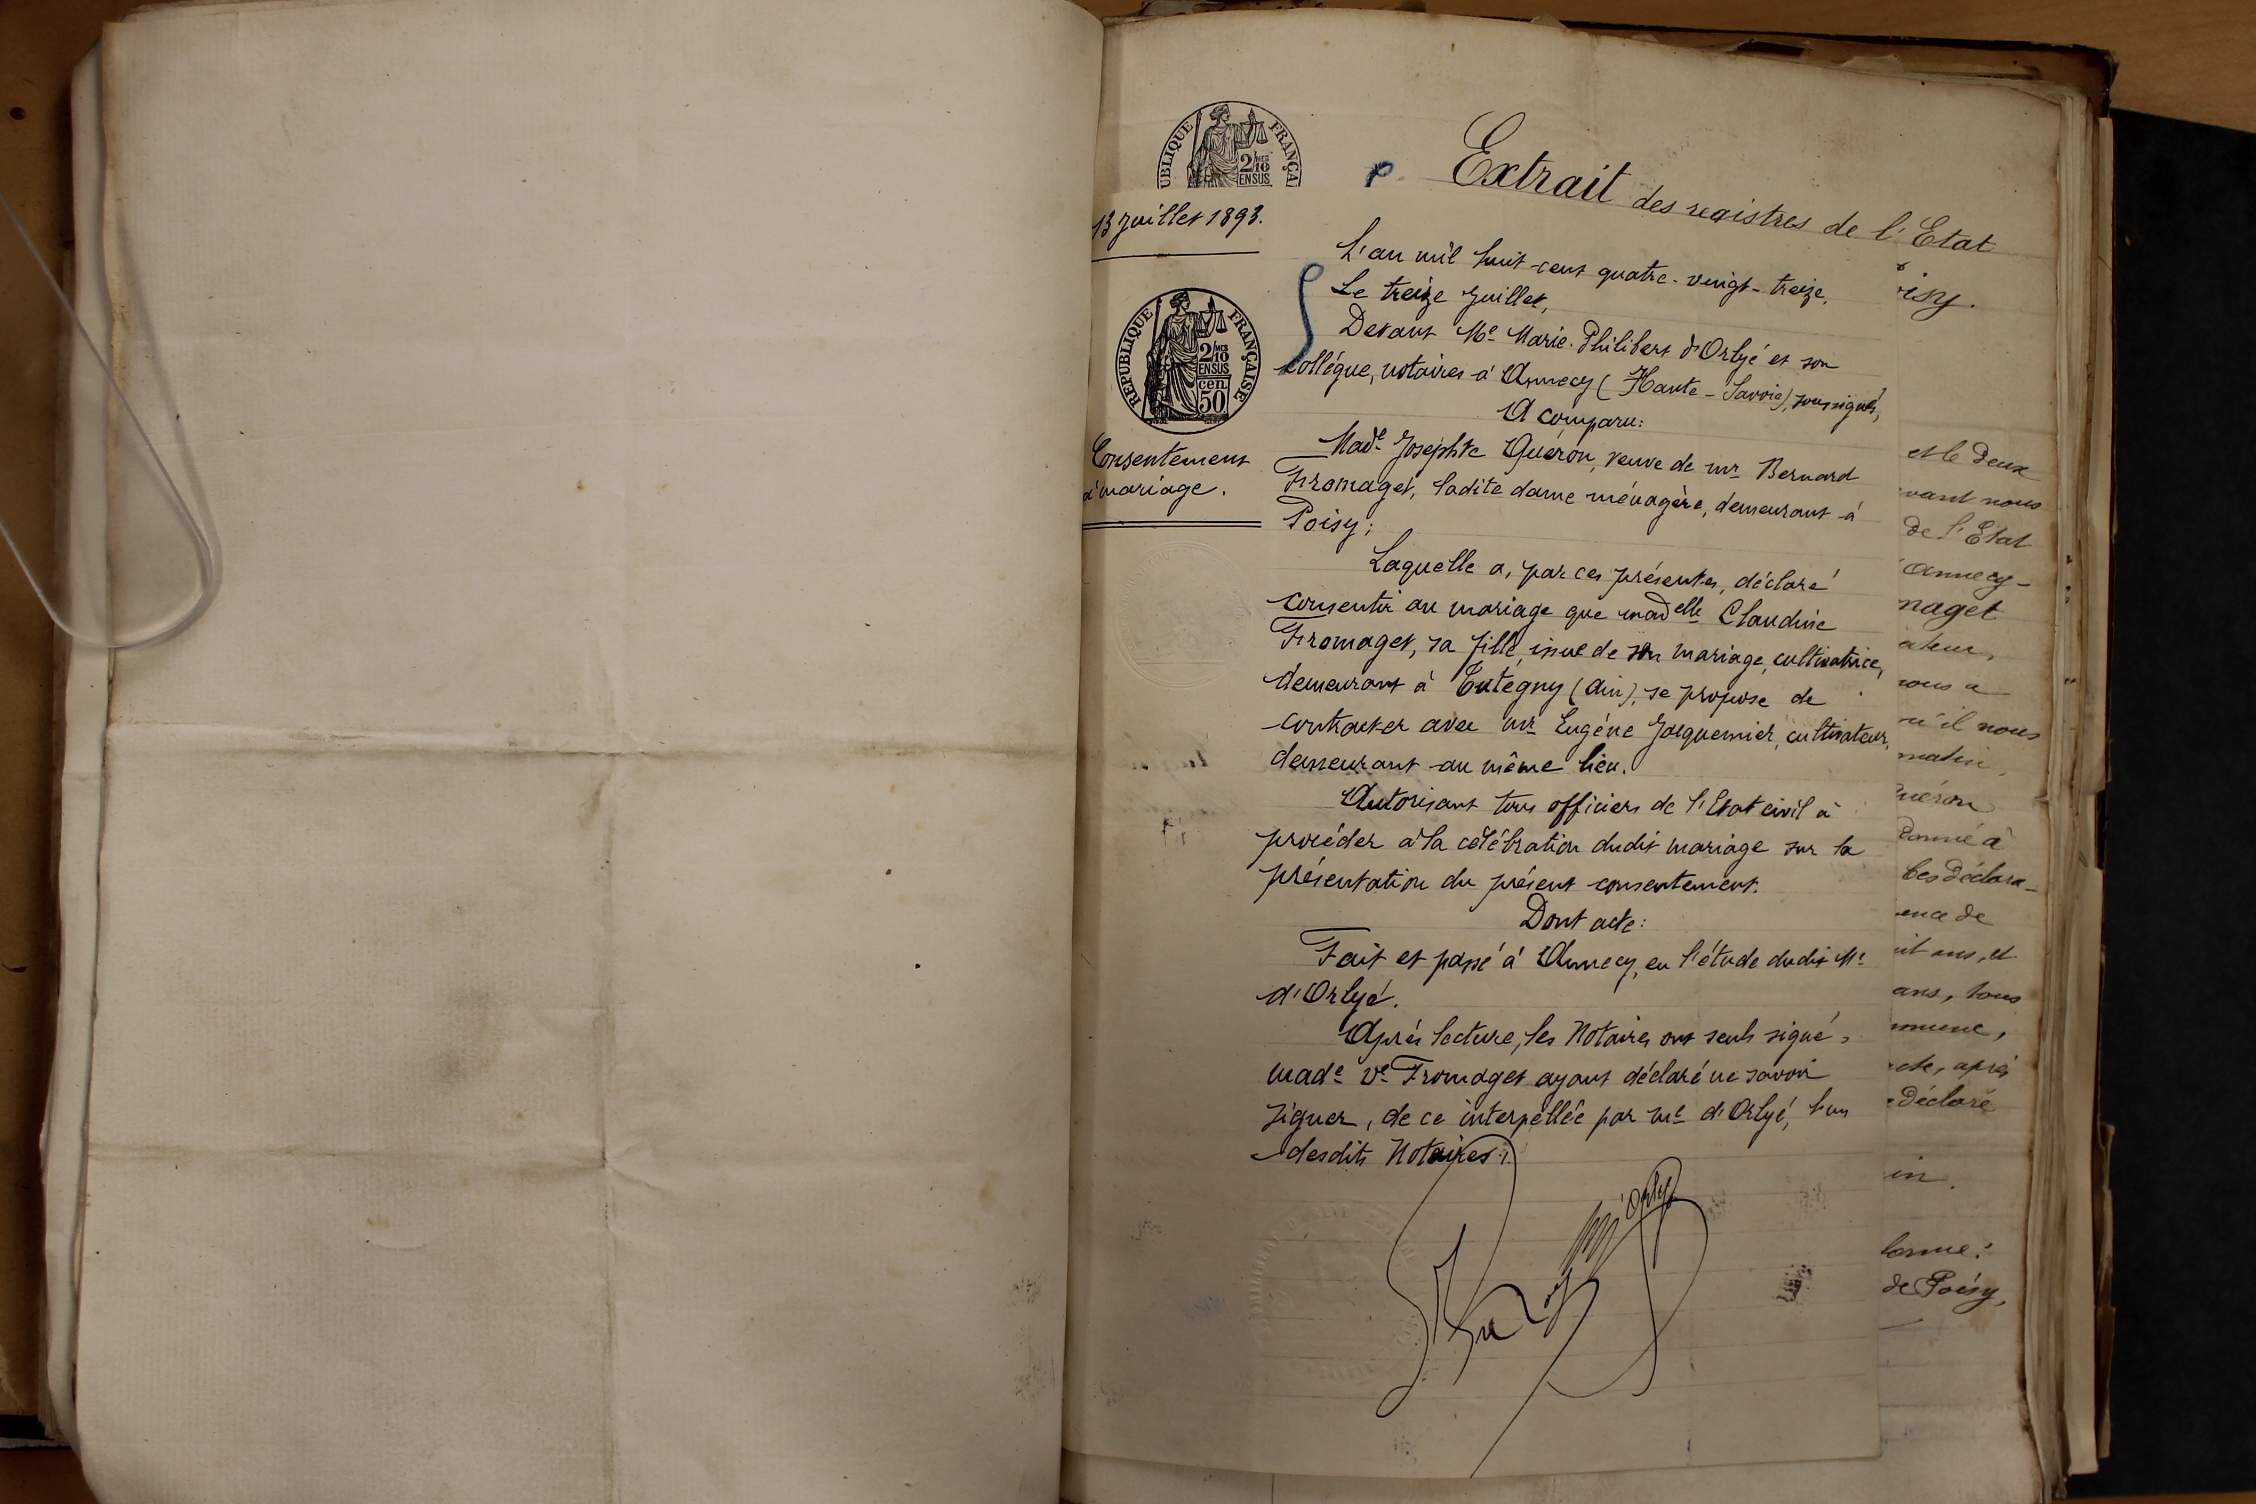 Extrait des registres de l'Etat
13 Juillet 1893.
RÉPUBLIQUE FRANÇAISE
2/10 MES
EN SUS
cen.
50
Consentement
à mariage.
L'an mil huit cent quatre-vingt-treize,
Le treize Juillet,
Devant Me Marie-Philibert d'Orlyé et son
collégue, notaires à Annecy (Haute-Savoie), soussignés,
A comparu:
Made Josephte Quéron, veuve de mr Bernard
Fromaget, ladite dame ménagère, demeurant à
Poisy;
Laquelle a, par ces présentes, déclaré
consentir au mariage que madelle Claudine
Fromaget, sa fille, issue de son mariage, cultivatrice,
demeurant à Cutegny (Ain), se propose de
contracter avec mr Eugène Jacquemier, cultivateur,
demeurant au même lieu.
Autorisant tous officiers de l'Etat civil à
procéder à la célébration dudit mariage sur la
présentation du présent consentement.
Dont acte:
Fait et passé à Annecy, en l'étude dudit Me
d'Orlyé.
Après lecture, les Notaires ont seuls signé,
made ve Fromaget ayant déclaré ne savoir
signer, de ce interpellée par me d'Orlyé, l'un
desdits Notaires.
d'Orlyé
isy.
et le deux
vant nous
de l'Etat
Annecy-
maget
ateur,
nous a
qu'il nous
matin
Quéron
donné à
Ces déclara-
ence de
it ans, et
ans, tous
mmune,
acte, après
déclaré
in.
forme:
de Poisy,